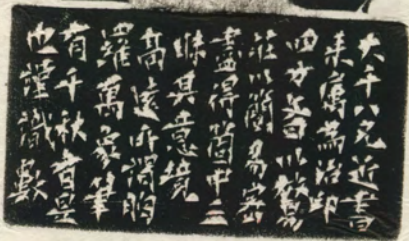 大千八兄近書
来屬為治印
四方以
以簡易
盡得箇中三
昧其意境
高遠所謂胸
羅萬象筆
有千秋者是
也謹識數